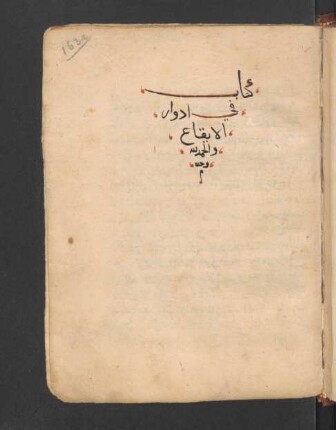 كتاب
في ادوار
الايقاع
والحمد لله
وحده
م